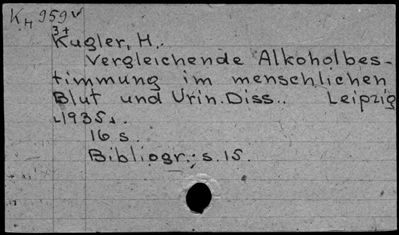 Kн 959v
3+
Kugler, H..
Vergleichende Alkoholbes-
timmung im menschlichen
Blut und Urin. Diss.. Leipzig
1935.
16 s.
Bibliogr.: s. 15.